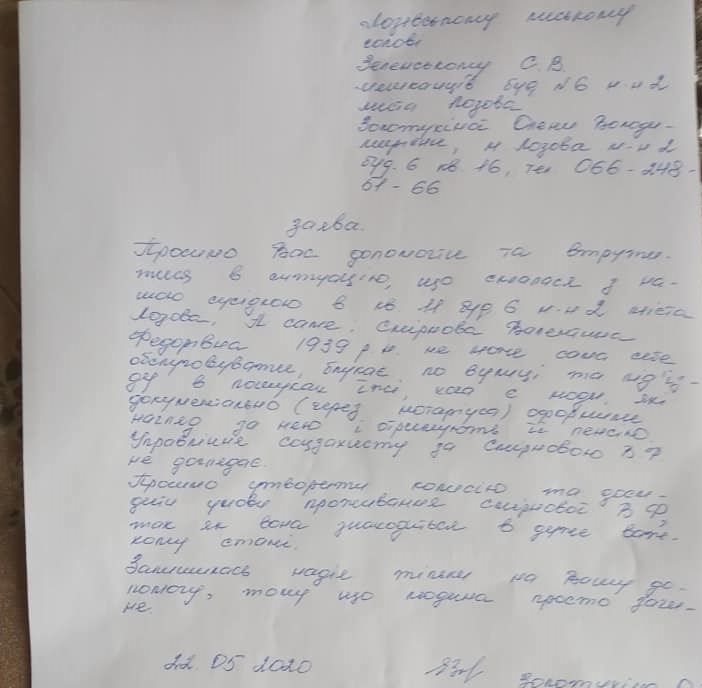 Лозівському міському
голові
Зеленському С.В.
мешканців буд №6 м-н 2
міста Лозова
Золотухіної Олени Володи-
мирівни, м Лозова м-н 2
буд. 6 кв. 16, тел. 066-248-
61-66
заява.
Просимо Вас допомогти та втрути-
тися в ситуацію, що склалася з на-
шою сусідкою в кв 11 буд. 6 м-н 2 міста
Лозова. А саме: Смірнова Валентина
Федорівна 1939 р.н. не може сама себе
обслуговувати, блукає по вулиці та під'їз-
ду в пошуках їжі, хоча є люди, які
документально (через нотаріуса) оформили
нагляд за нею і отримують її пенсію.
Управління соцзахисту за Смірновою В Ф
не доглядає.
Просимо утворити комісію та дослі-
дити умови проживання Смірнової В Ф,
так як вона знаходиться в дуже важ-
кому стані.
Залишилась надія тільки на Вашу до-
помогу, тому що людина просто заги-
не.
22.05.2020
Золотухіна О